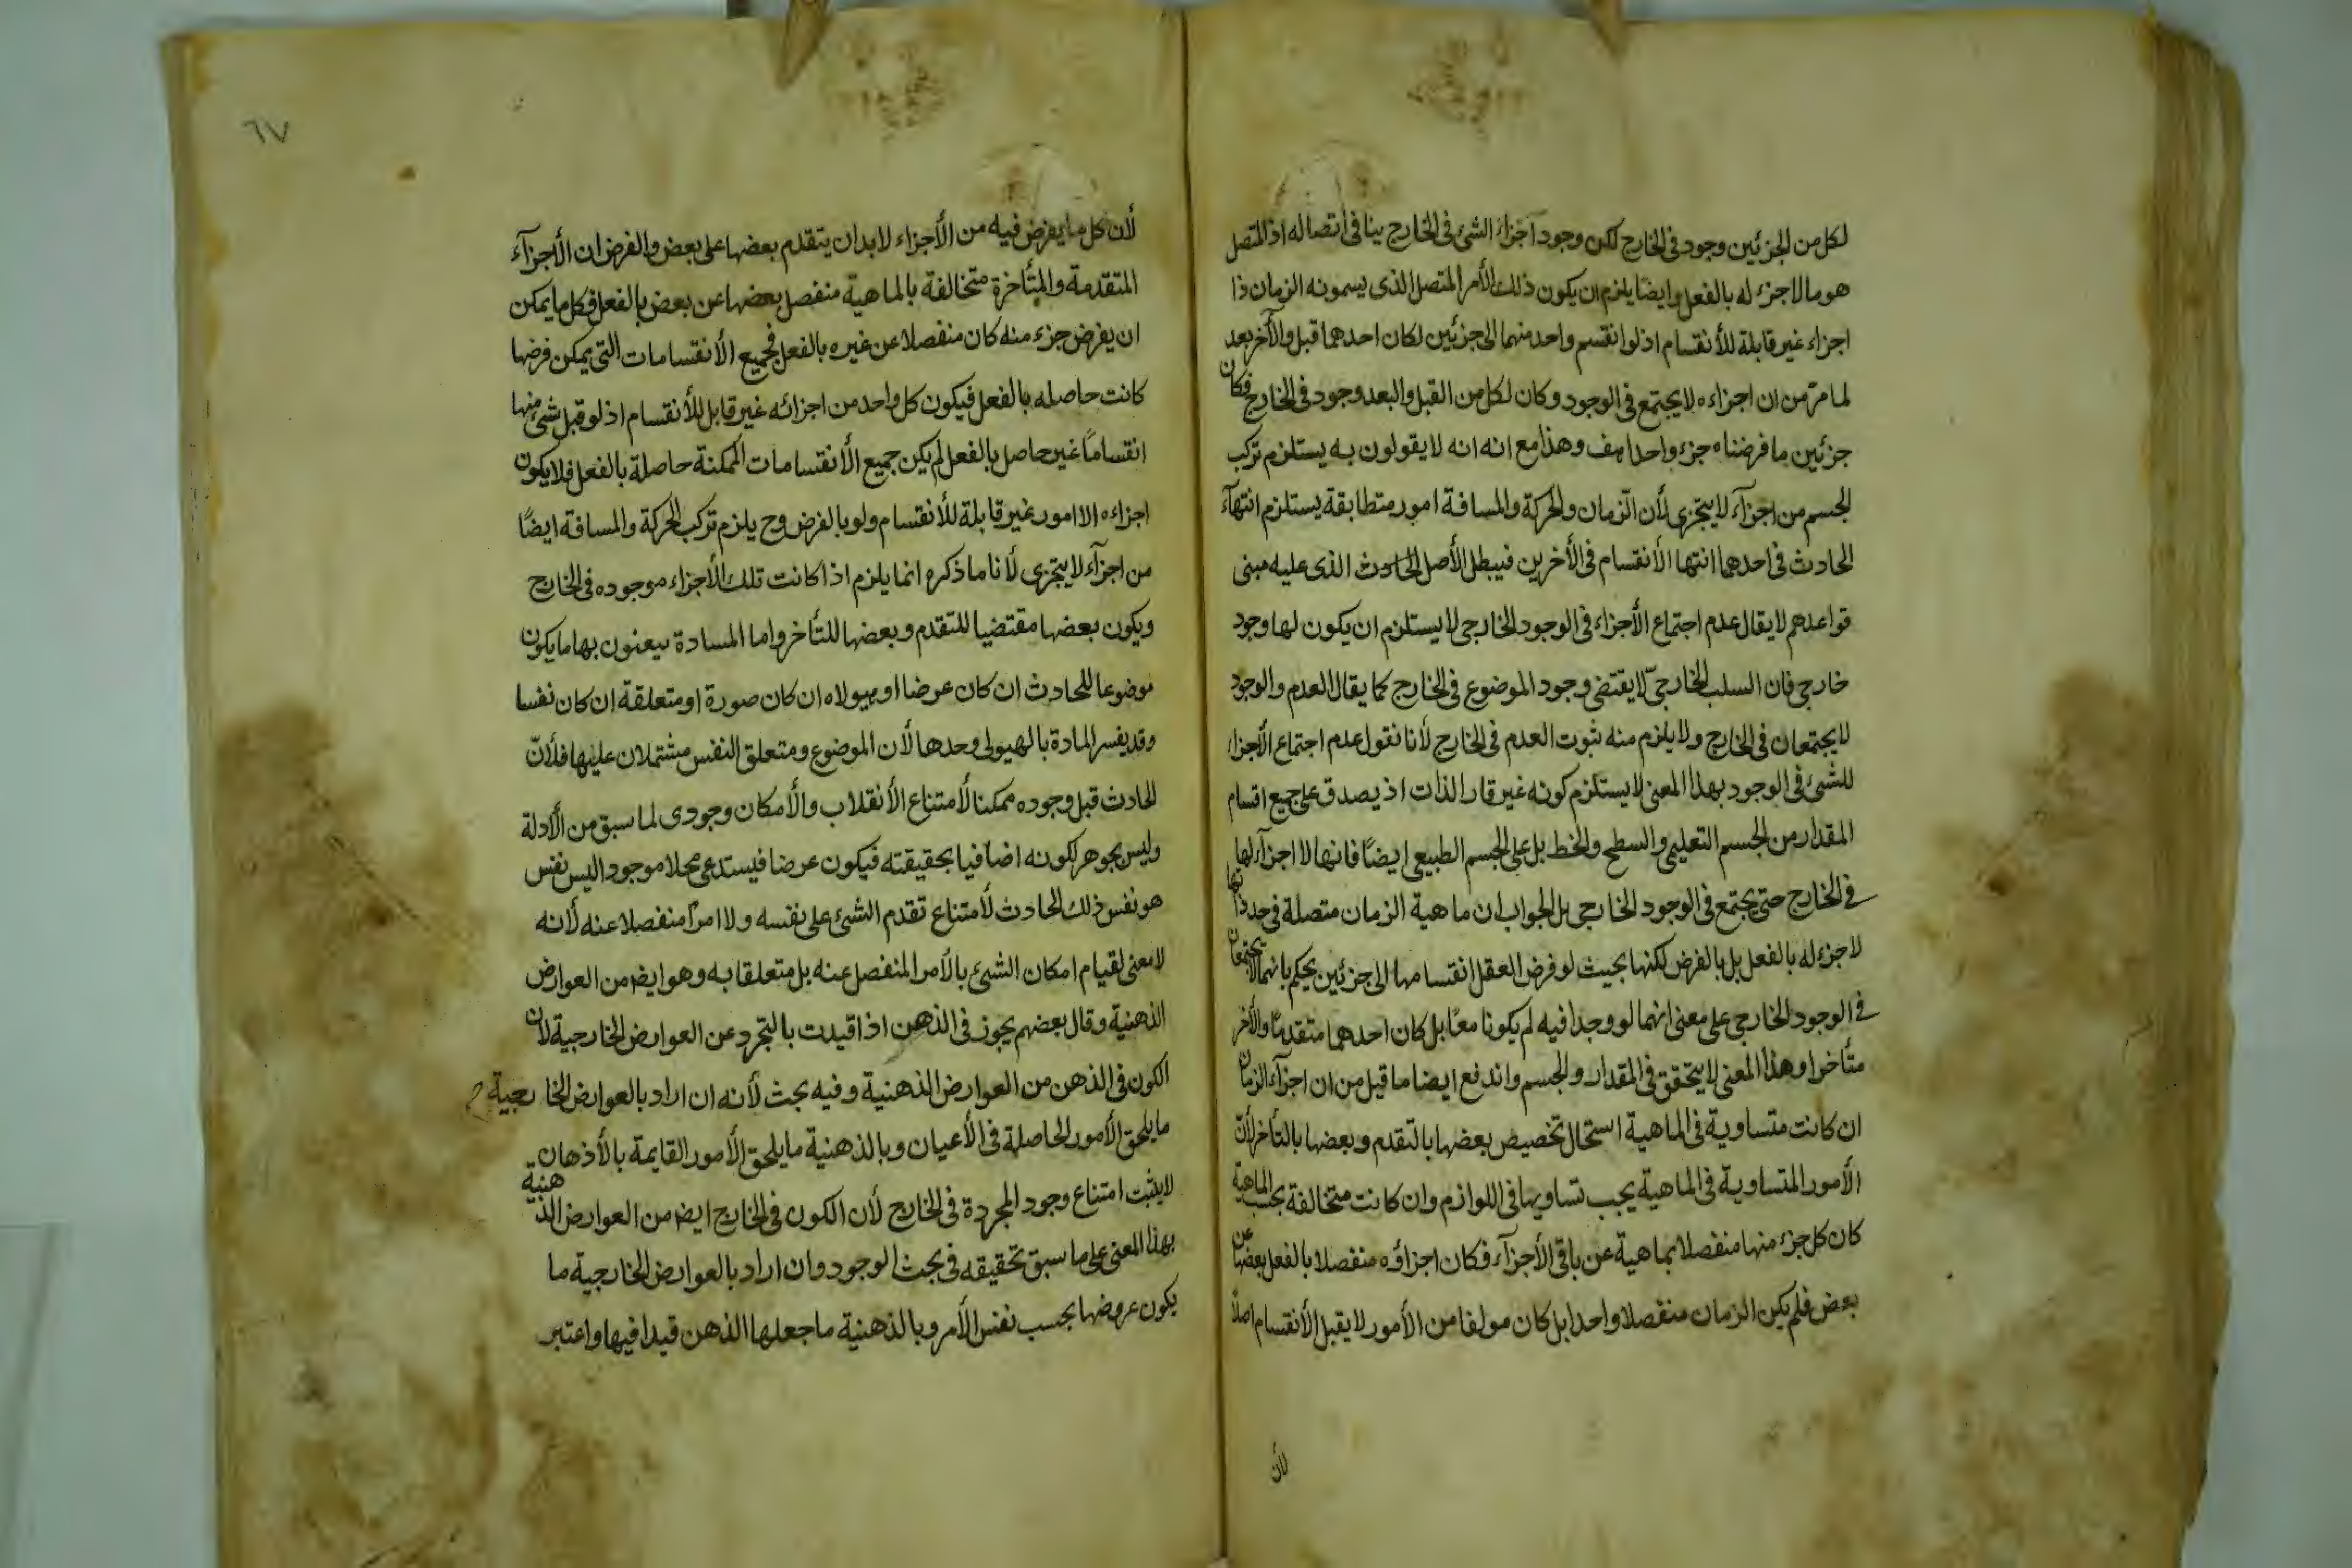 لكل من الجزئين وجود فى الخارج لكن وجود اجزاء الشئ فى الخارج ينافى اتصاله اذ المتصل
هو ما لا جزء له بالفعل وايضا يلزم ان يكون ذلك الأمر المتصل الذى يسمونه الزمان ذا
اجزاء غير قابلة للأنقسام اذ لو انقسم واحد منهما الى جزئين لكان احدهما قبل والآخر بعد
لما مر من ان اجزاءه لا يجتمع فى الوجود وكان لكل من القبل والبعد وجود فى الخارج فكان
جزئين ما فرضناه جزء واحدا هف وهذا مع انه انه لا يقولون به يستلزم تركب
الجسم من اجزآء لا يتجزى لأن الزمان والحركة والمسافة امور متطابقة يستلزم انتهآء
الحادث فى احدهما انتها الأنقسام فى الأخرين فيبطل الأصل الحادث الذى عليه مبنى
قواعدهم لا يقال عدم اجتماع الأجزاء فى الوجود الخارجى لا يستلزم ان يكون لها وجود
خارجى فان السلب الخارجى لا يقتضى وجود الموضوع فى الخارج كما يقال العدم والوجود
لا يجتمعان فى الخارج ولا يلزم منه ثبوت العدم فى الخارج لأنا نقول عدم اجتماع الأجزاء
للشئ فى الوجود بهذا المعنى لا يستلزم كونه غير قار الذات اذ يصدق على جميع اقسام
المقدار من الجسم التعليمى والسطح والخط بل على الجسم الطبيعى ايضًا فانها لا اجزآء لها
فى الخارج حتى يجتمع فى الوجود الخارجى بل الجواب ان ماهية الزمان متصلة فى حد ذاتها
لا جزء له بالفعل بل بالفرض لكنها بحيث لو فرض العقل انقسامها الى جزئين يحكم بانهما لا يجتمعان
فى الوجود الخارجى على معنى انهما لو وجدا فيه لم يكونا معًا بل كان احدهما متقدمًا والأخر
متأخرا وهذا المعنى لا يتحقق فى المقدار والجسم واندفع ايضا ما قيل من ان اجزآء الزمان
ان كانت متساوية فى الماهية استحال تخصيص بعضها بالتقدم وبعضها بالتأخر لأن
الأمور المتساوية فى الماهية يجب تساويها فى اللوازم وان كانت متخالفة بحسب الماهية
كان كل جزء منها منفصلا بماهية عن باقى الأجزآء فكان اجزاؤه منفصلا بالفعل بعضها عن
بعض فلم يكن الزمان منفصلا واحدا بل كان مولفا من الأمور لا يقبل الأنقسام اصلًا
لأن
٦٧
لأن كل ما يفرض فيه من الأجزاء لا بد ان يتقدم بعضها على بعض والفرض ان الأجزآء
المتقدمة والمتأخرة متخالفة بالماهية منفصل بعضها عن بعض بالفعل فكل ما يمكن
ان يفرض جزء منه كان منفصلا عن غيره بالفعل فجميع الأنقسامات التى يمكن فرضها
كانت حاصله بالفعل فيكون كل واحد من اجزائه غير قابل للأنقسام اذ لو قبل شئ منها
انقسامًا غير حاصل بالفعل لم يكن جميع الأنقسامات الممكنة حاصلة بالفعل فلا يكون
اجزاءه الا امور غير قابلة للأنقسام ولو بالفرض وح يلزم تركب الحركة والمسافة ايضًا
من اجزآء لا يتجزى لأنا ما ذكره انما يلزم اذا كانت تلك الأجزاء موجوده فى الخارج
ويكون بعضها مقتضيا للتقدم وبعضها للتأخر واما المسادة يعنون بها ما يكون
موضوعا للحادث ان كان عرضا او هيولاه ان كان صورة او متعلقة ان كان نفسا
وقد يفسر المادة بالهيولى وحدها لأن الموضوع ومتعلق النفس مشتملان عليها فلأن
الحادث قبل وجوده ممكنا لأمتناع الأنقلاب والأمكان وجودى لما سبق من الأدلة
وليس بجوهر لكونه اضافيا بحقيقته فيكون عرضا فيستدعى محلا موجودا ليس نفس
هو نفس ذلك الحادث لأمتناع تقدم الشئ على نفسه ولا امرًا منفصلا عنه لأنه
لا معنى لقيام امكان الشئ بالأمر المنفصل عنه بل متعلقا به وهو ايضا من العوارض
الذهنية وقال بعضهم يجوز فى الذهن اذا قيدت بالتجرد عن العوارض الخارجية لأن
الكون فى الذهن من العوارض الذهنية وفيه بحث لأنه ان اراد بالعوارض الخارجية
ما يلحق الأمور الحاصلة فى الأعيان وبالذهنية ما يلحق الأمور القايمة بالأذهان
لا يثبت امتناع وجود المجردة فى الخارج لأن الكون فى الخارج ايضا من العوارض الذهنية
بهذا المعنى على ما سبق تحقيقه فى بحث الوجود وان اراد بالعوارض الخارجية ما
يكون عروضها بحسب نفس الأمر وبالذهنية ما جعلها الذهن قيدا فيها واعتبر